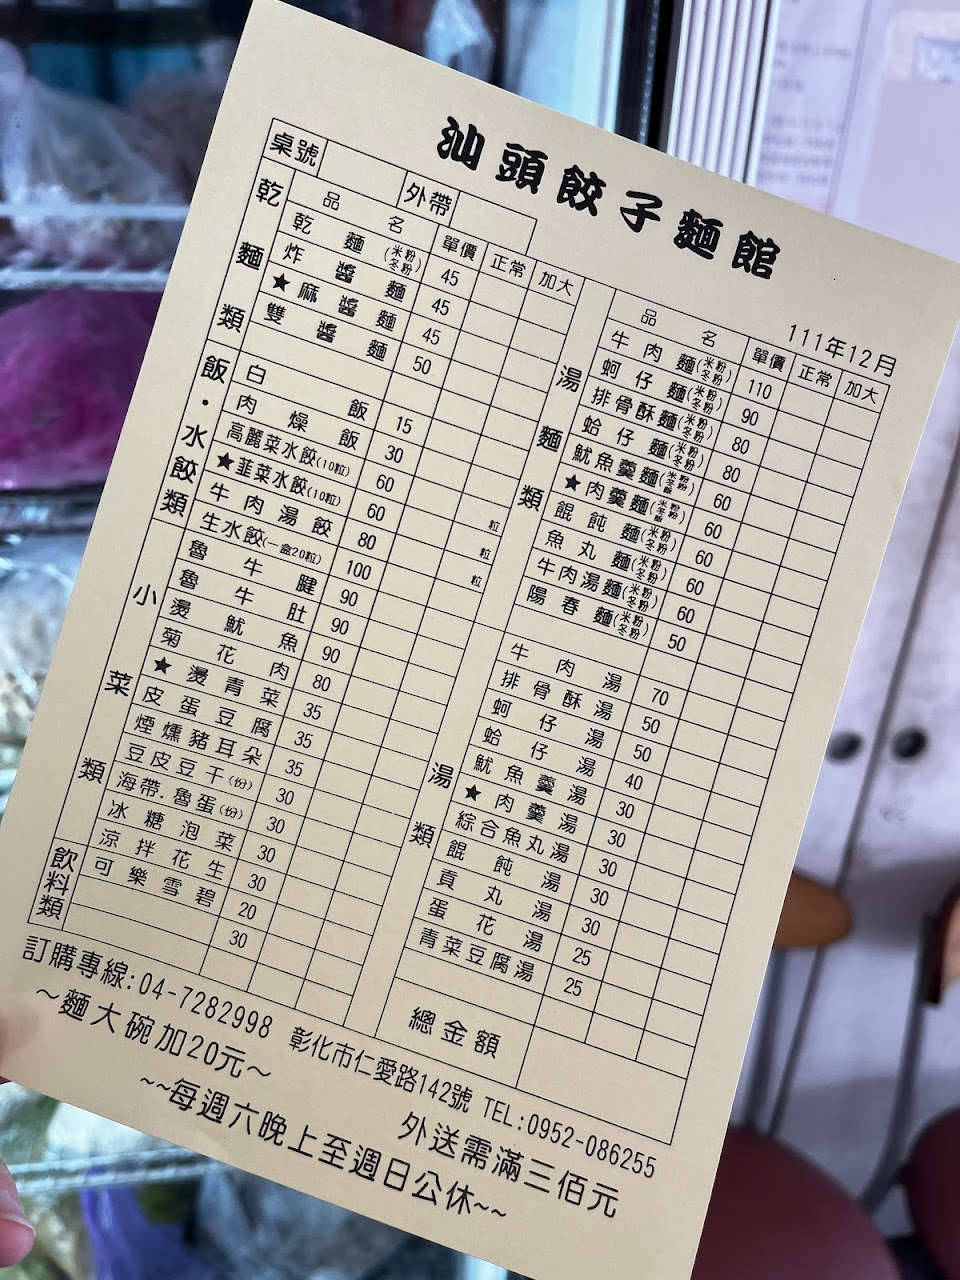 汕頭餃子麵館
111年12月
桌號 外帶
乾麵類
品名 單價 正常 加大
乾麵(米粉 冬粉) 45
炸醬麵 45
★麻醬麵 45
雙醬麵 50
飯・水餃類
白飯 15
肉燥飯 30
高麗菜水餃(10粒) 60 粒
★韭菜水餃(10粒) 60 粒
牛肉湯餃 80 粒
生水餃(一盒20粒) 100
小菜類
魯牛腱 90
魯牛肚 90
燙魷魚 90
菊花肉 80
★燙青菜 35
皮蛋豆腐 35
煙燻豬耳朵 35
豆皮豆干(份) 30
海帶.魯蛋(份) 30
冰糖泡菜 30
涼拌花生 30
飲料類
可樂雪碧 20
30
湯麵類
品名 單價 正常 加大
牛肉麵(米粉 冬粉) 110
蚵仔麵(米粉 冬粉) 90
排骨酥麵(米粉 冬粉) 80
蛤仔麵(米粉 冬粉) 80
魷魚羹麵(米粉 冬粉 飯) 60
★肉羹麵(米粉 冬粉 飯) 60
餛飩麵(米粉 冬粉) 60
魚丸麵(米粉 冬粉) 60
牛肉湯麵(米粉 冬粉) 60
陽春麵(米粉 冬粉) 50
湯類
牛肉湯 70
排骨酥湯 50
蚵仔湯 50
蛤仔湯 40
魷魚羹湯 30
★肉羹湯 30
綜合魚丸湯 30
餛飩湯 30
貢丸湯 30
蛋花湯 25
青菜豆腐湯 25
總金額
訂購專線:04-7282998 彰化市仁愛路142號 TEL:0952-086255
～麵大碗加20元～ 外送需滿三佰元
~~每週六晚上至週日公休~~